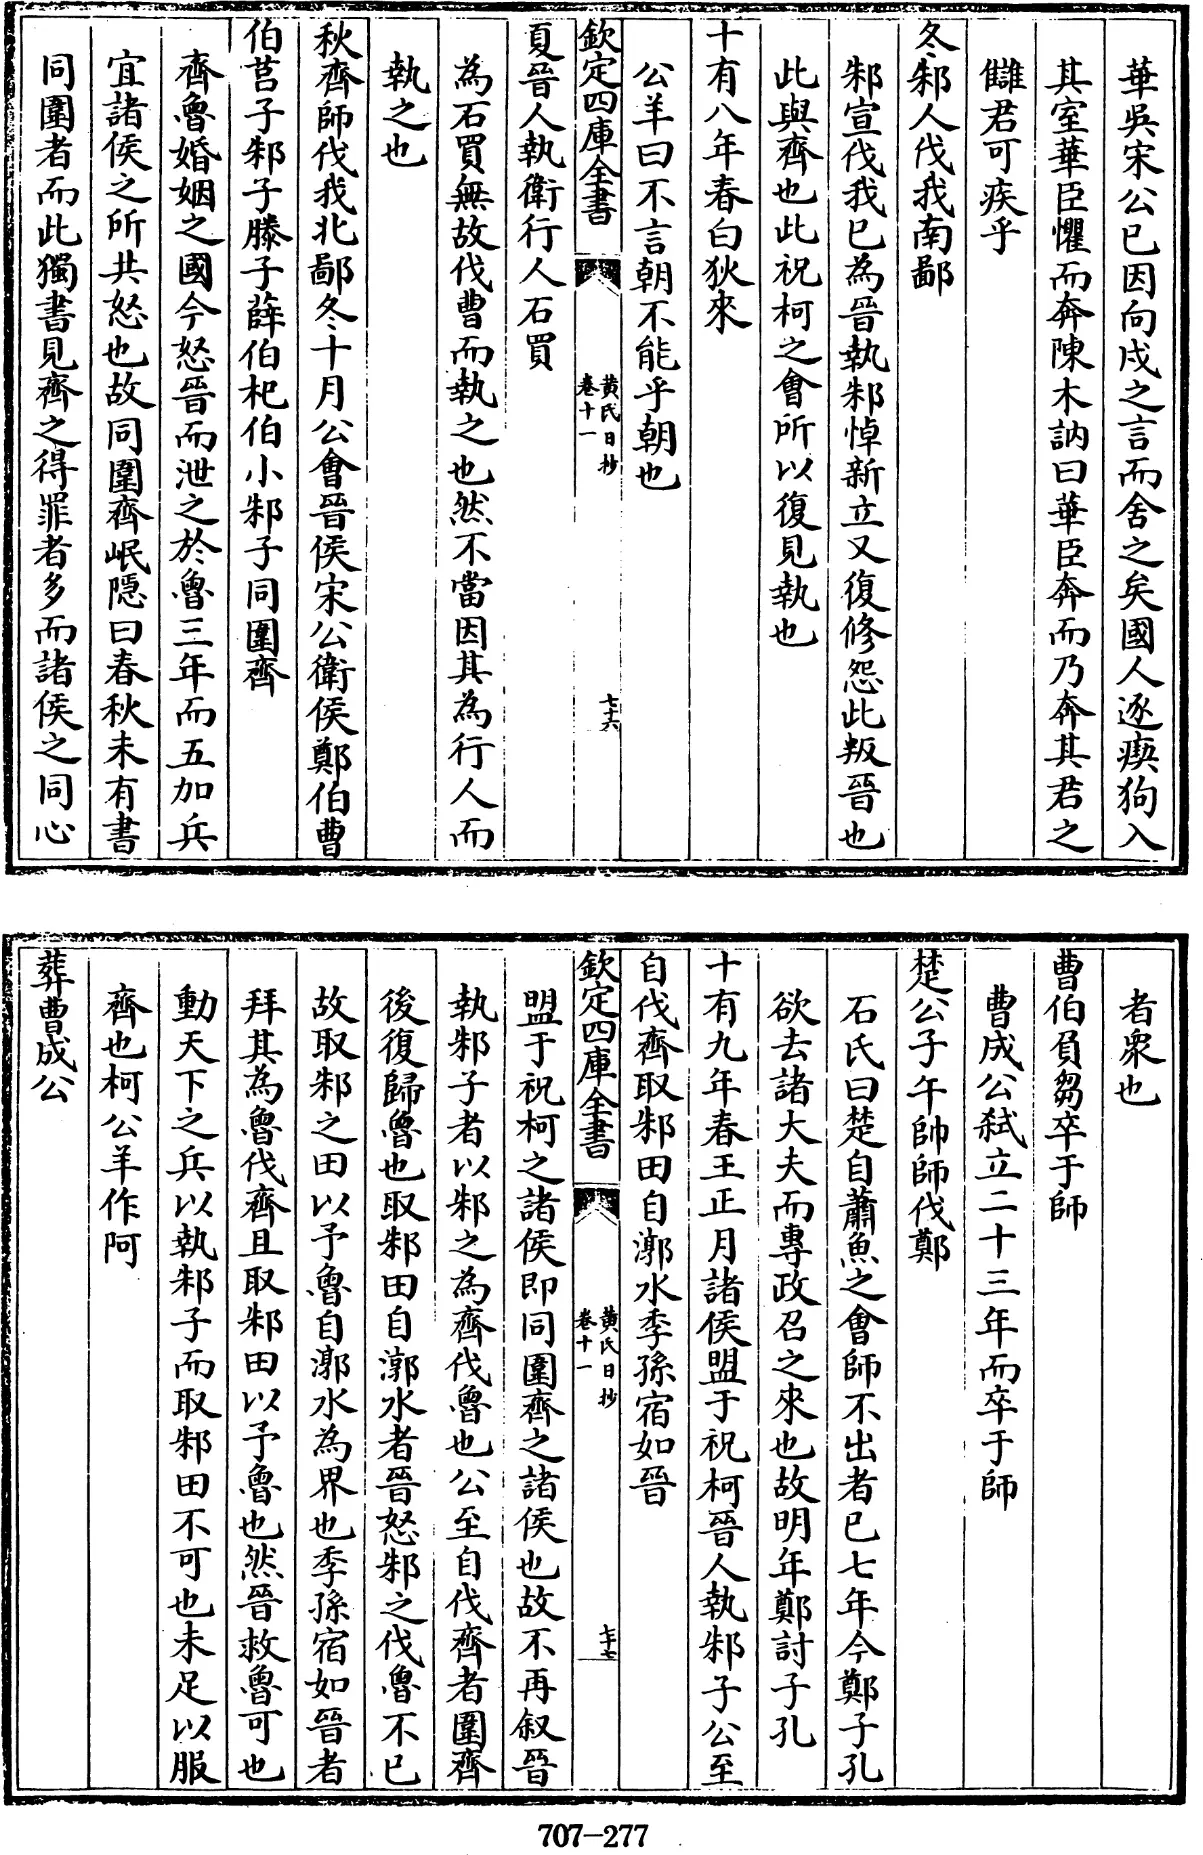 華吳宋公已因向戌之言而舍之矣國人逐瘈狗入
其室華臣懼而奔陳木訥曰華臣奔而乃奔其君之
讎君可疾乎
冬邾人伐我南鄙
邾宣伐我已為晉執邾悼新立又復修怨此叛晉也
此與齊也此祝柯之會所以復見執也
十有八年春白狄來
公羊曰不言朝不能乎朝也
欽定四庫全書
黄氏日抄
卷十一
七十六
夏晉人執衛行人石買
為石買無故伐曹而執之也然不當因其為行人而
執之也
秋齊師伐我北鄙冬十月公會晉侯宋公衛侯鄭伯曹
伯莒子邾子滕子薛伯杞伯小邾子同圍齊
齊魯婚姻之國今怒晉而泄之於魯三年而五加兵
宜諸侯之所共怒也故同圍齊岷隱曰春秋未有書
同圍者而此獨書見齊之得罪者多而諸侯之同心
者衆也
曹伯負芻卒于師
曹成公弑立二十三年而卒于師
楚公子午帥師伐鄭
石氏曰楚自蕭魚之會師不出者已七年今鄭子孔
欲去諸大夫而專政召之來也故明年鄭討子孔
十有九年春王正月諸侯盟于祝柯晉人執邾子公至
自伐齊取邾田自漷水季孫宿如晉
欽定四庫全書
黄氏日抄
卷十一
七十七
盟于祝柯之諸侯即同圍齊之諸侯也故不再叙晉
執邾子者以邾之為齊伐魯也公至自伐齊者圍齊
後復歸魯也取邾田自漷水者晉怒邾之伐魯不已
故取邾之田以予魯自漷水為界也季孫宿如晉者
拜其為魯伐齊且取邾田以予魯也然晉救魯可也
動天下之兵以執邾子而取邾田不可也未足以服
齊也柯公羊作阿
葬曹成公
707-277